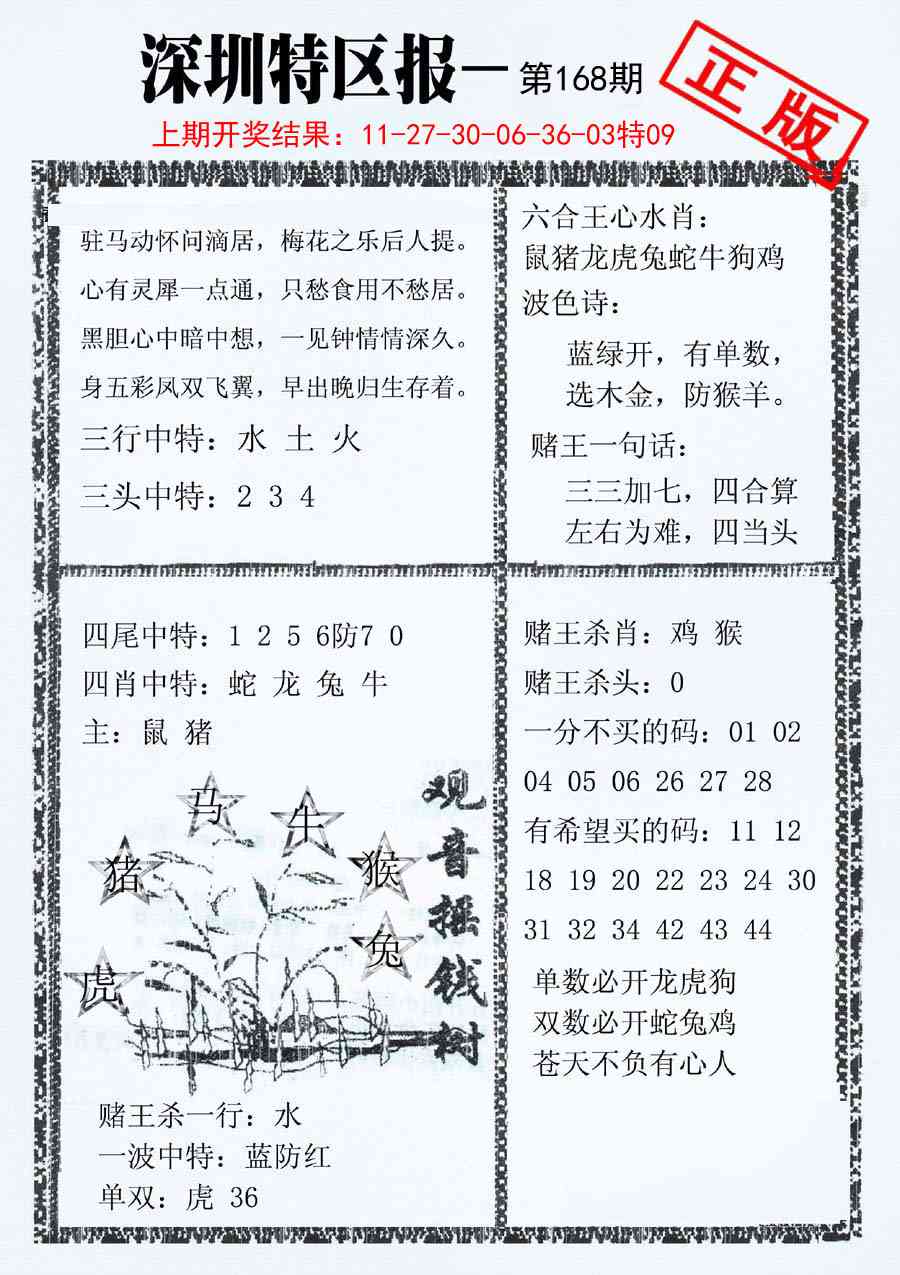 深圳特区报一 第168期
正版
上期开奖结果：11-27-30-06-36-03特09
驻马动怀问滴居，梅花之乐后人提。
心有灵犀一点通，只愁食用不愁居。
黑胆心中暗中想，一见钟情情深久。
身五彩凤双飞翼，早出晚归生存着。
三行中特：水 土 火
三头中特：2 3 4
六合王心水肖：
鼠猪龙虎兔蛇牛狗鸡
波色诗：
蓝绿开，有单数，
选木金，防猴羊。
赌王一句话：
三三加七，四合算
左右为难，四当头
四尾中特：1 2 5 6防7 0
四肖中特：蛇 龙 兔 牛
主：鼠 猪
马
牛
猪
猴
兔
虎
观音摇钱树
赌王杀一行：水
一波中特：蓝防红
单双：虎 36
赌王杀肖：鸡 猴
赌王杀头：0
一分不买的码：01 02
04 05 06 26 27 28
有希望买的码：11 12
18 19 20 22 23 24 30
31 32 34 42 43 44
单数必开龙虎狗
双数必开蛇兔鸡
苍天不负有心人